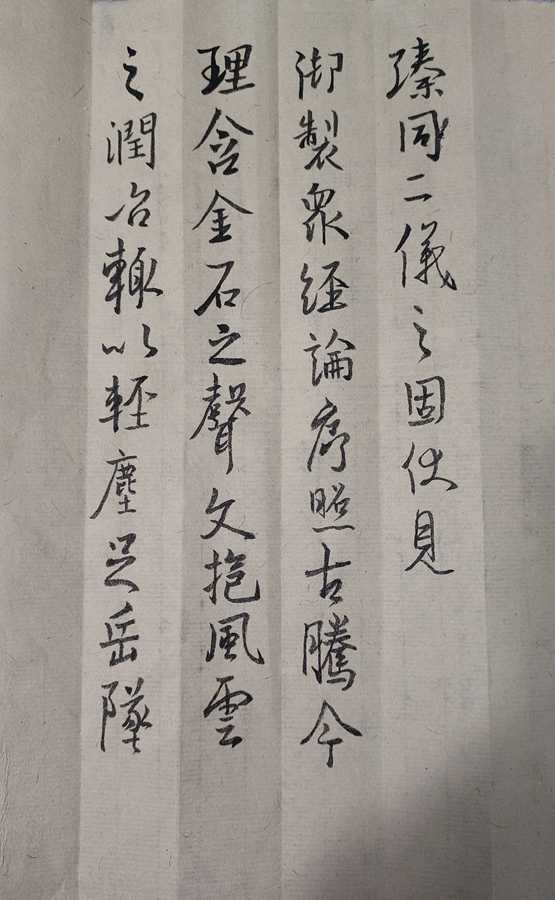 臻同二儀之固伏見
御製衆經論序照古騰今
理含金石之聲文抱風雲
之潤治輙以輕塵足岳墜